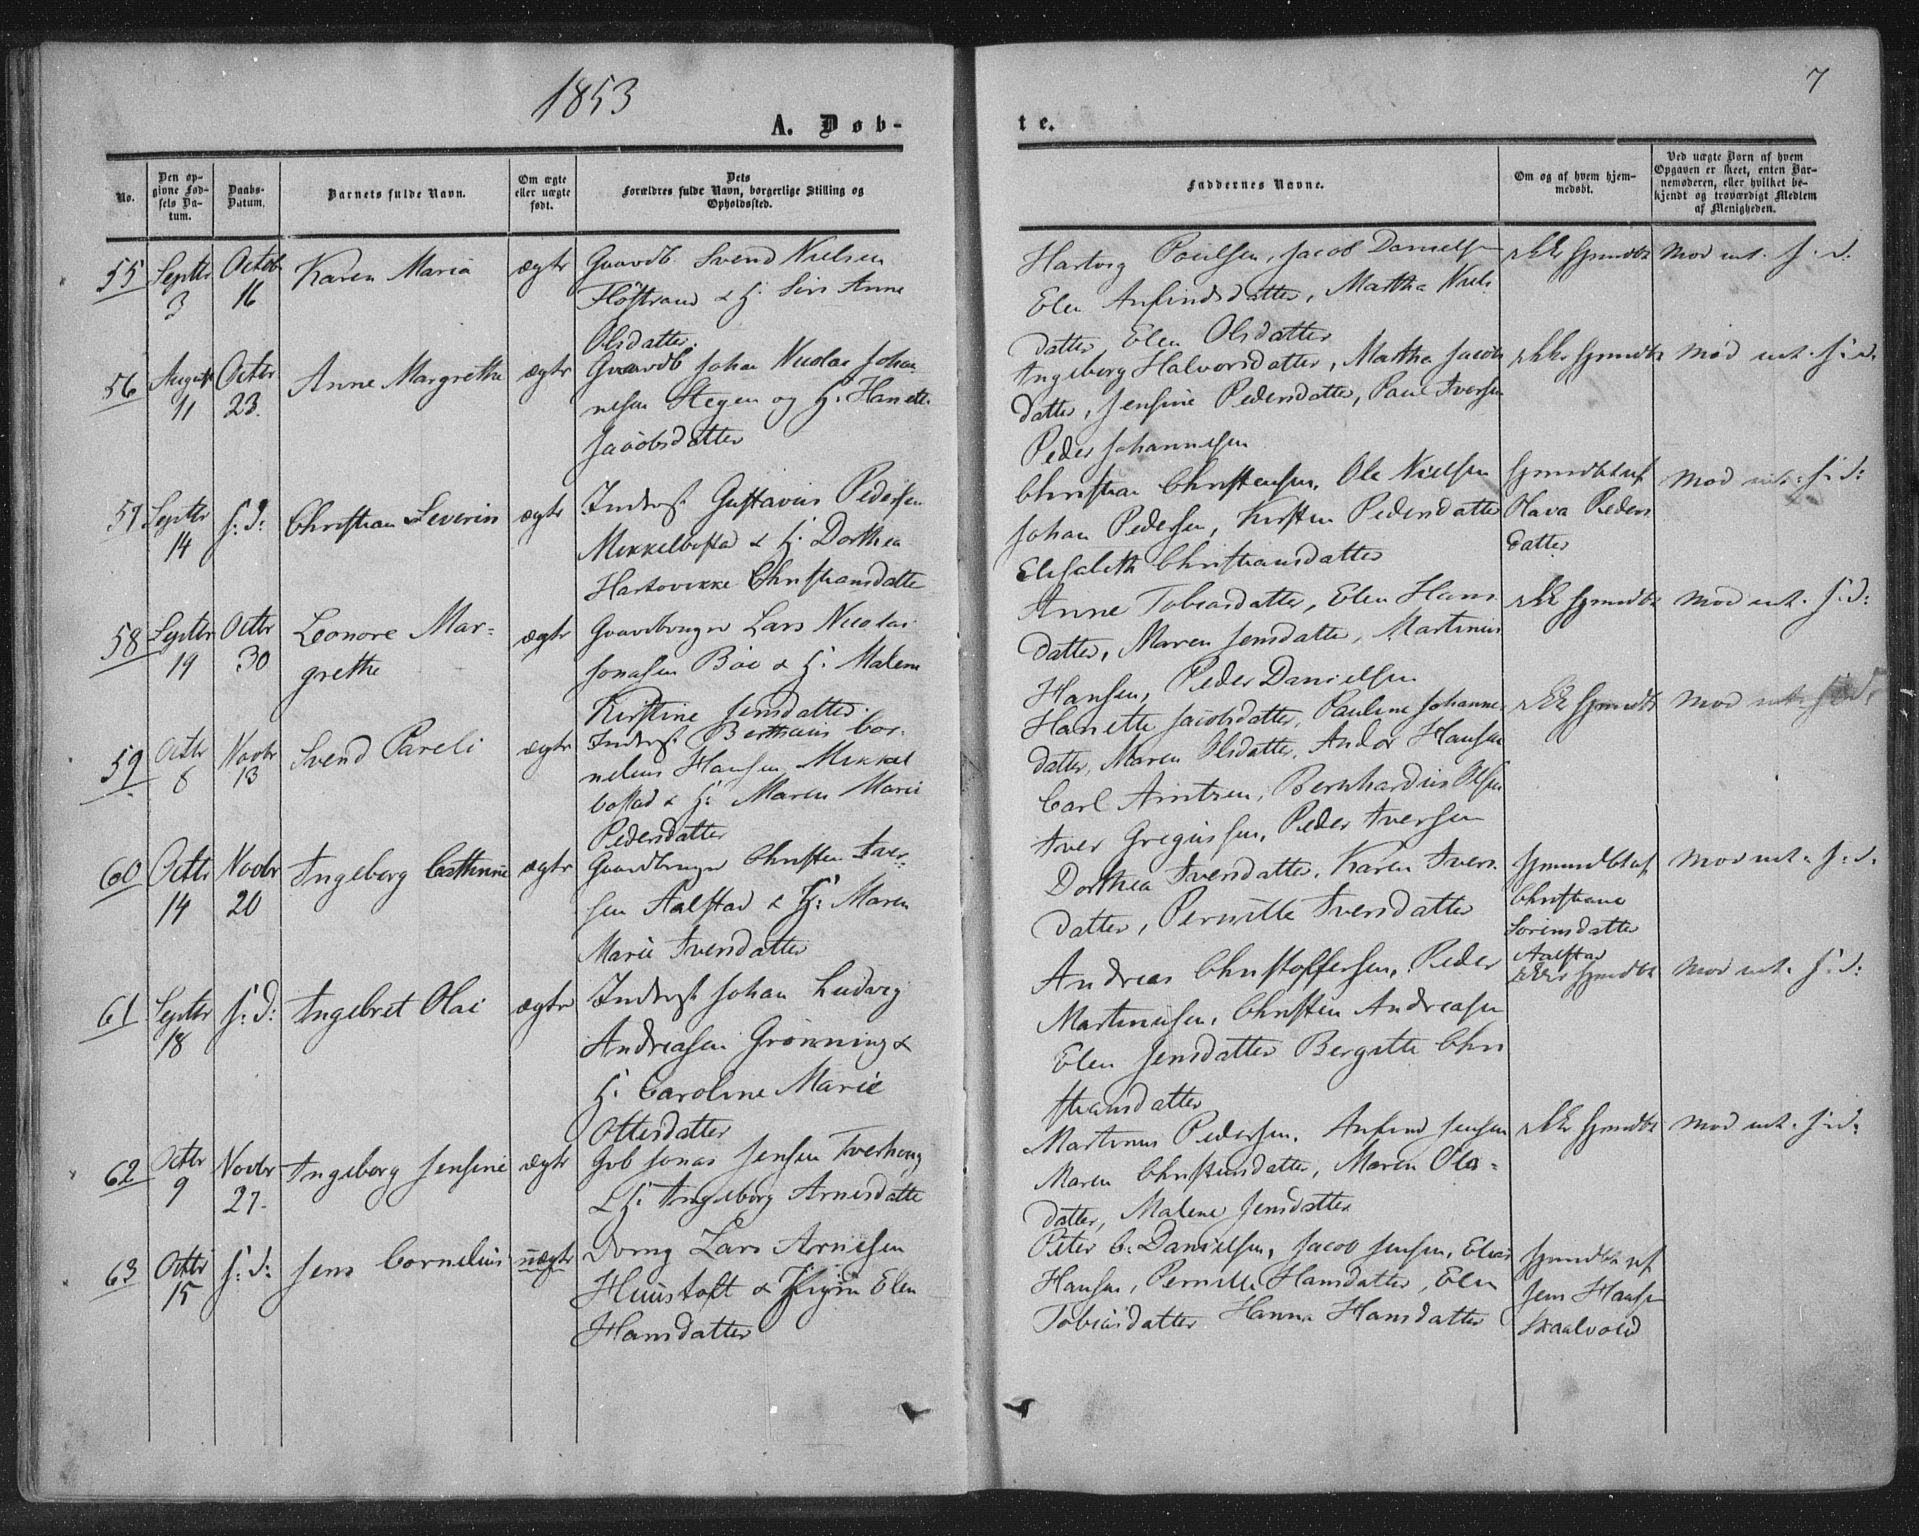 1853
7
A. Døb-
te.
No.
Den op-
givne Fød-
sels Da-
tum.
Daabs-
Datum.
Barnets fulde Navn.
Om ægte
eller uægte
født.
Dets
Forældres fulde Navn, borgerlige Stilling og
Opholdssted.
Faddernes Navne.
Om og af hvem hjem-
medøbt.
Ved uægte Born af hvem
Opgaven er skeet, enten Bar-
nemoderen, eller hvilket be-
kjendt og troværdigt Medlem
af Menigheden.
55
Septbr
3
Octob
16
Karen Maria
ægte
Gaardb. Svend Nielsen
Fløstrand & H. Siri Anne
Olsdatter.
Hartvig Poulsen, Jacob Danielsen
Elen Anfindsdatter, Martha Niels
datter, Elen Olsdatter
ikke hjmdbt
Mod int. s. d.
56
August
11
Octbr
23.
Anne Margrethe
ægte
Gaardb Johan Nicolai Johan
nesen Stegen og H. Hanette
Jacobsdatter
Ingeborg Halvorsdatter, Martha Jacobs
datter, Jensine Pedersdatter, Paul Iversen
Peder Johannesen
ikke hjmdbt
Mod int. s. d.
57
Septbr
14
s: d:
Christian Severin
ægte
Inderst Gustavus Pedersen
Mikkelbostad & H. Dorthea
Hartovikke Christiansdatte
Christian Christensen, Ole Nielsen
Johan Pedersen, Kirsten Pedersdatter
Elisabeth Christiansdatter
hjmdbt af
Olava Peders
datter
Mod int. s. d:
58
Septbr
19
Octbr
30
Leonore Mar-
grethe
ægte
Gaardbruger Lars Nicolai
Jonassen Böe & H. Malene
Kirstine Jensdatter.
Anne Tobiasdatter, Elen Hans
datter, Maren Jensdatter, Martinus
Hansen, Peder Danielsen
ikke hjmdbt
Mod int. s. d:
59
Octbr
6
Novbr
13
Svend Pareli
ægte
Inderst Bertheus Cor-
nelius Hansen Mikkel
bostad & H. Maren Marie
Pedersdatter
Hanette Jacobsdatter, Pauline Johannes
datter, Maren Olsdatter, Andor Hansen
Carl Arntzen, Bernhardus Olsen
Iver Gregussen, Peder Iversen
ikke hjmdbt
Mod int. s. d.
60
Octbr
14
Novbr
20
Ingeborg Cathrine
ægte
Gaardbruger Christen Iver-
sen Aalstad & H: Maren
Marie Iversdatter
Dorthea Iversdatter, Karen Ivers
datter, Pernille Iversdatter
hjmmdbt af
Christiane
Sørensdatter
Aalstad
Mod int. s. d.
61
Septbr
18
s: d:
Ingebret Olai
ægte
Inderst Johan Ludvig
Andreasen Grønning &
H. Caroline Marie
Ottesdatter
Andreas Christoffersen, Peder
Martinusen, Christen Andreasen
Elen Jensdatter Bergitte Chri
stiansdatter
ikke hjmdbt
Mod int. s. d:
62
Octbr
9
Novbr
27.
Ingeborg Jensine
ægte
Gvb Jonas Jensen Tverhoug
& H. Ingeborg Arnesdatte
Martinus Pedersen, Anfind Jensen
Maren Christensdatter, Maren Ola-
datter, Malene Jensdatter
ikke hjmdbt
Mod int. s. d.
63
Octbr
15
s: d:
Jens Cornelius
uægte
Dreng Lars Arnesen
Huustoft & Pigen Elen
Hansdatter
Peter C. Danielsen, Jacob Jensen, Elias
Hansen, Pernille Hansdatter, Elen
Tobiasdatter Hanna Hansdatter
hjmdbt af
Jens Hansen
Skaalvold